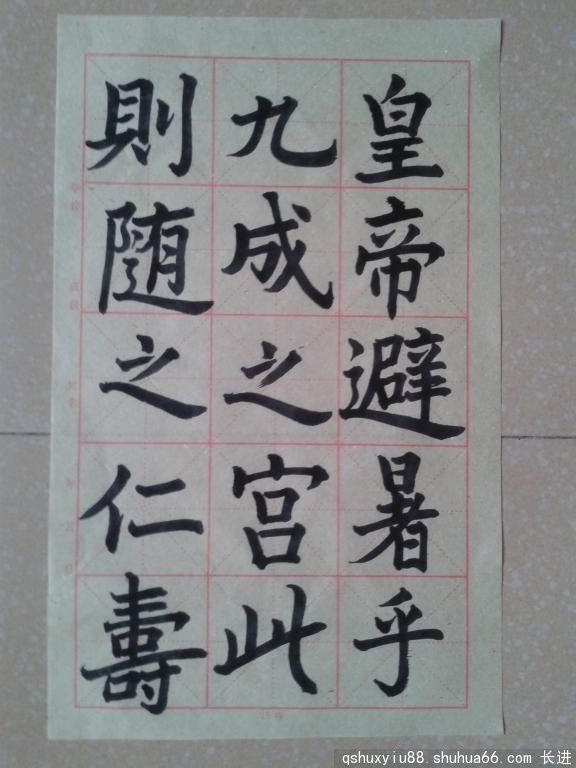 皇帝避暑乎
九成之宫此
則随之仁壽
qshuxyiu88.shuhua66.com 长进